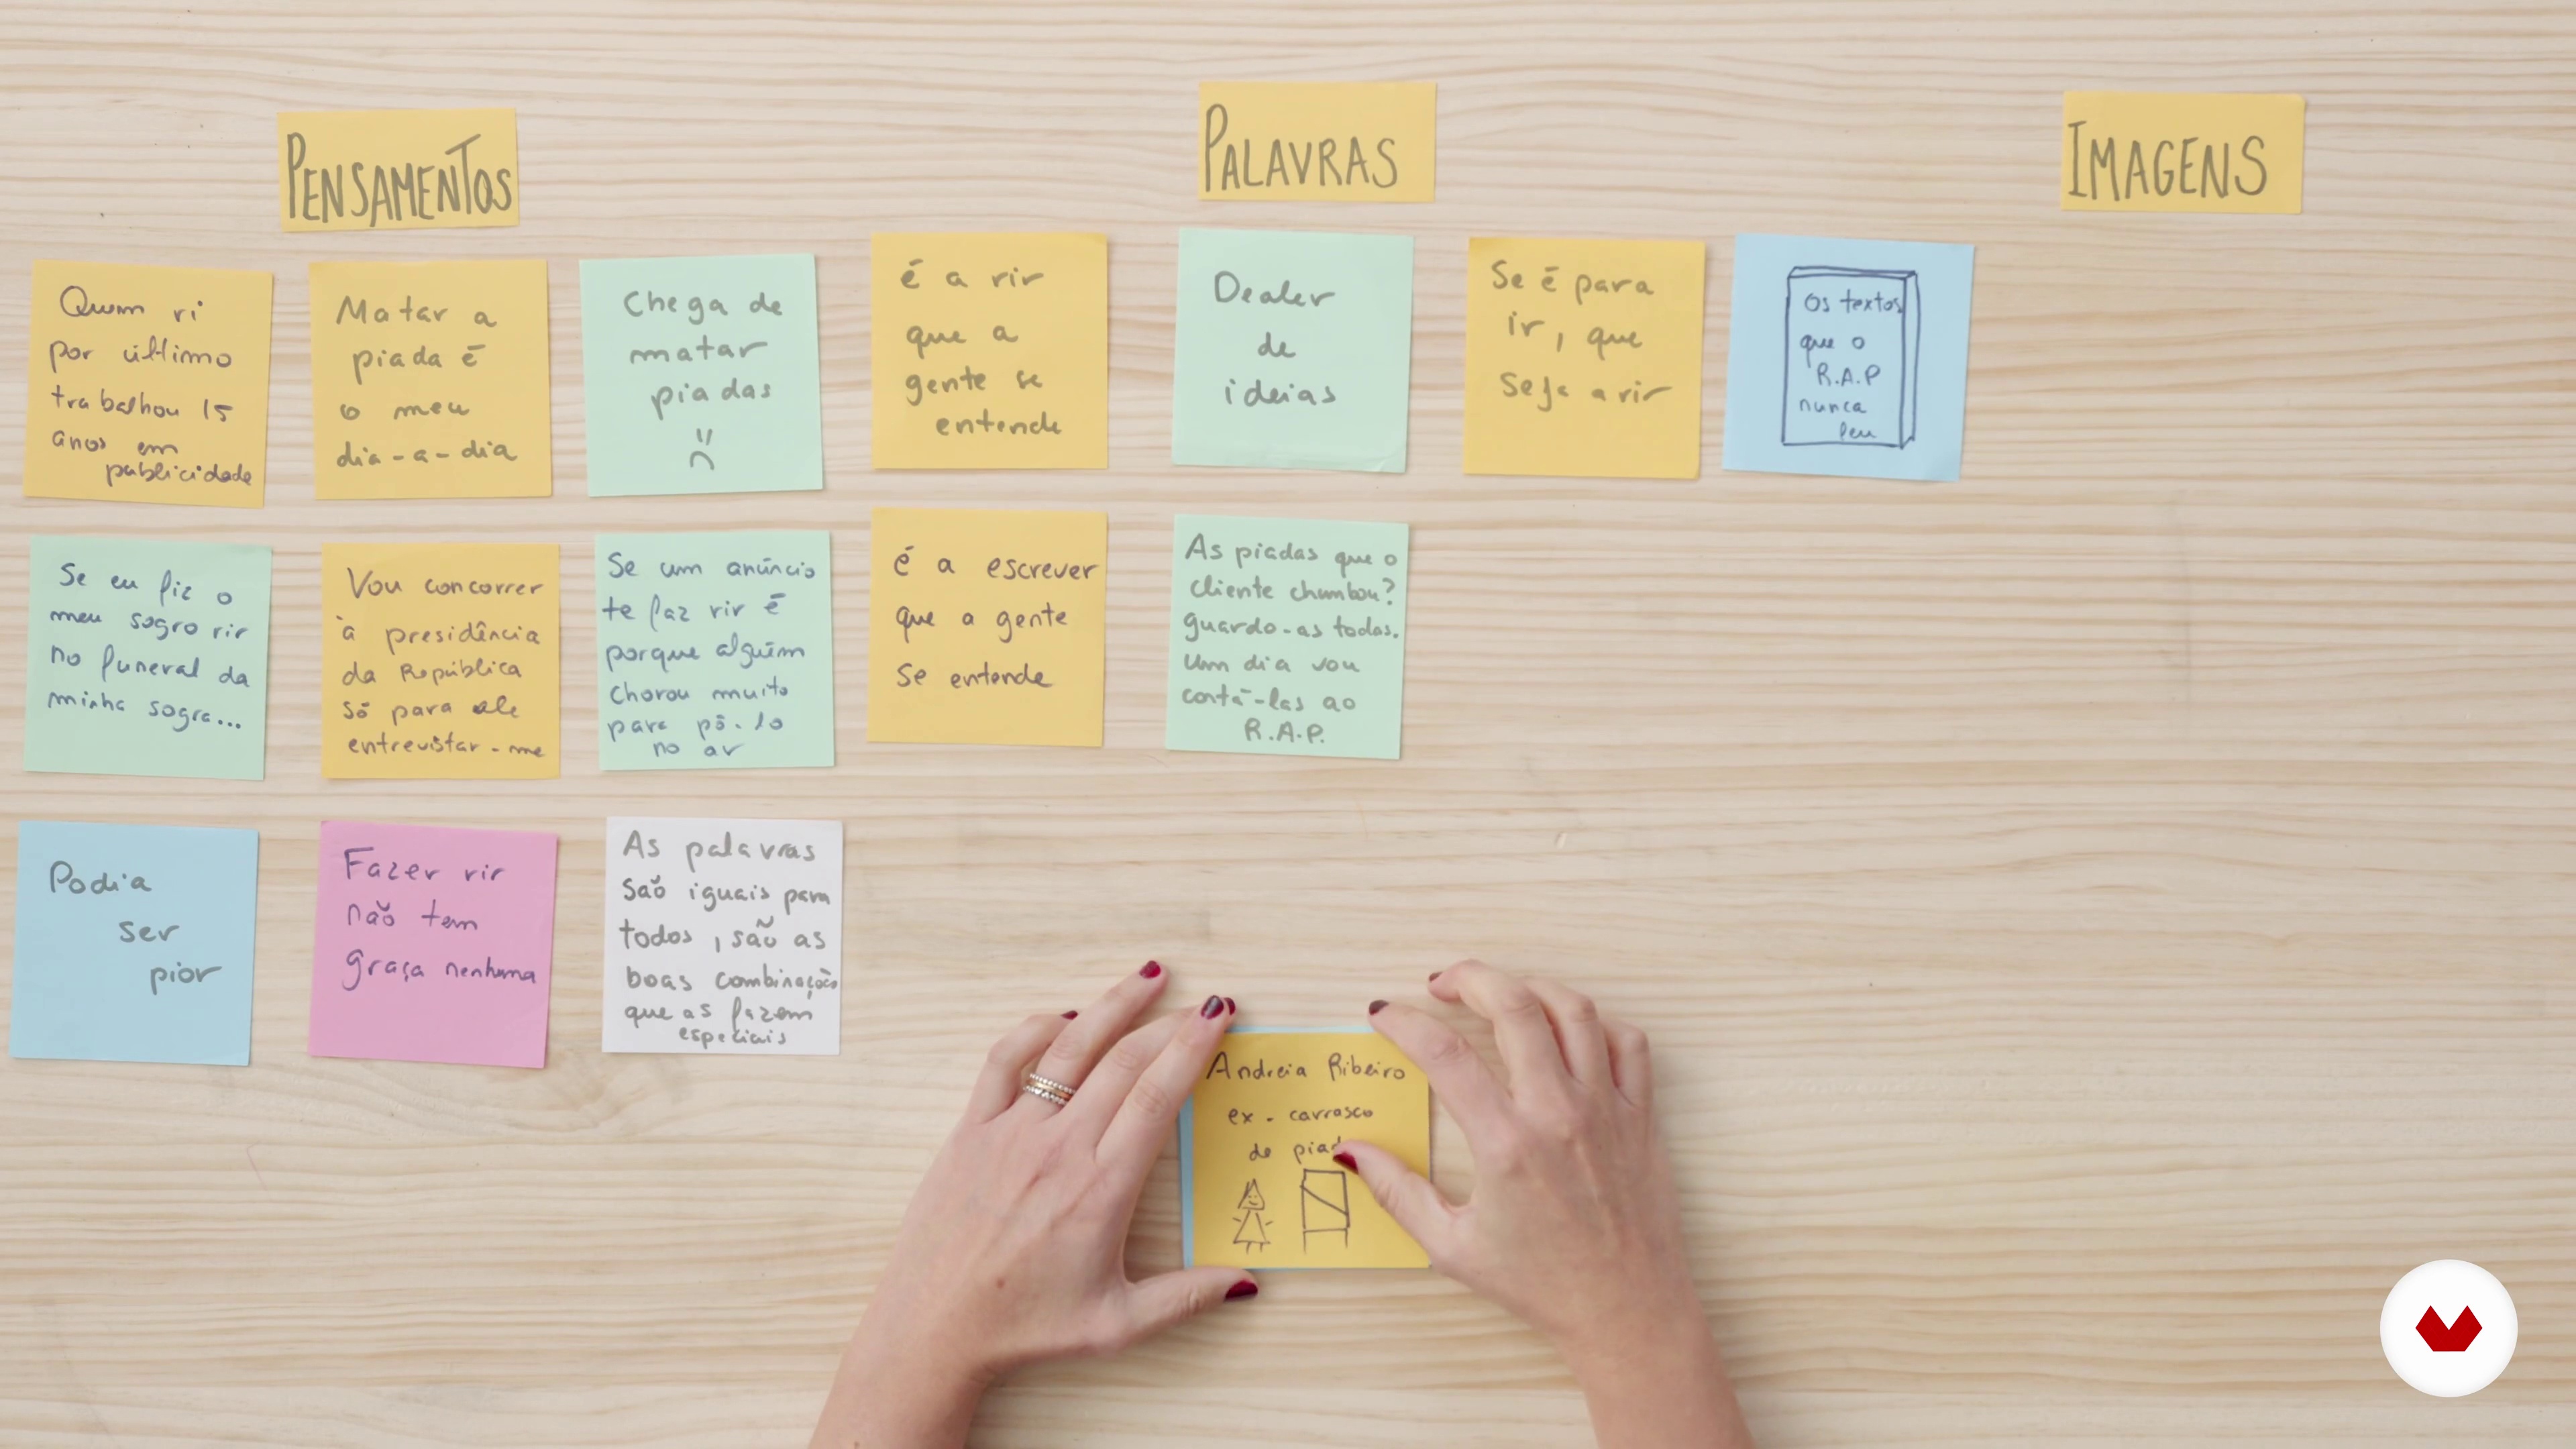 PENSAMENTOS
PALAVRAS
IMAGENS
Quem ri
por último
trabalhou 15
anos em
publicidade
Matar a
piada é
o meu
dia-a-dia
Chega de
matar
piadas
é a rir
que a
gente se
entende
Dealer
de
ideias
Se é para
ir, que
seja a rir
Os textos
que o
R.A.P
nunca
leu
Se eu fiz o
meu sogro rir
no funeral da
minha sogra...
Vou concorrer
à presidência
da República
só para ele
entrevistar-me
Se um anúncio
te faz rir é
porque alguém
chorou muito
para pô-lo
no ar
é a escrever
que a gente
se entende
As piadas que o
cliente chumbou?
guardo-as todas.
Um dia vou
contá-las ao
R.A.P.
Podia
ser
pior
Fazer rir
não tem
graça nenhuma
As palavras
são iguais para
todos, são as
boas combinações
que as fazem
especiais
Andreia Ribeiro
ex-carrasco
de